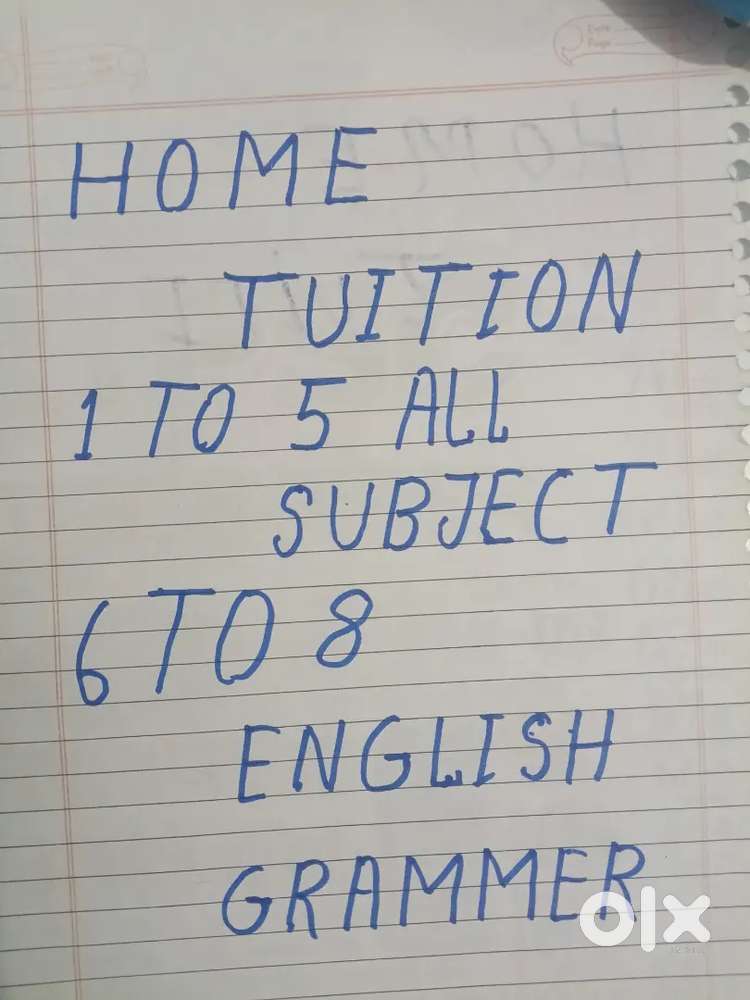 HOME
TUITION
1 TO 5 ALL
SUBJECT
6 TO 8
ENGLISH
GRAMMER
olx